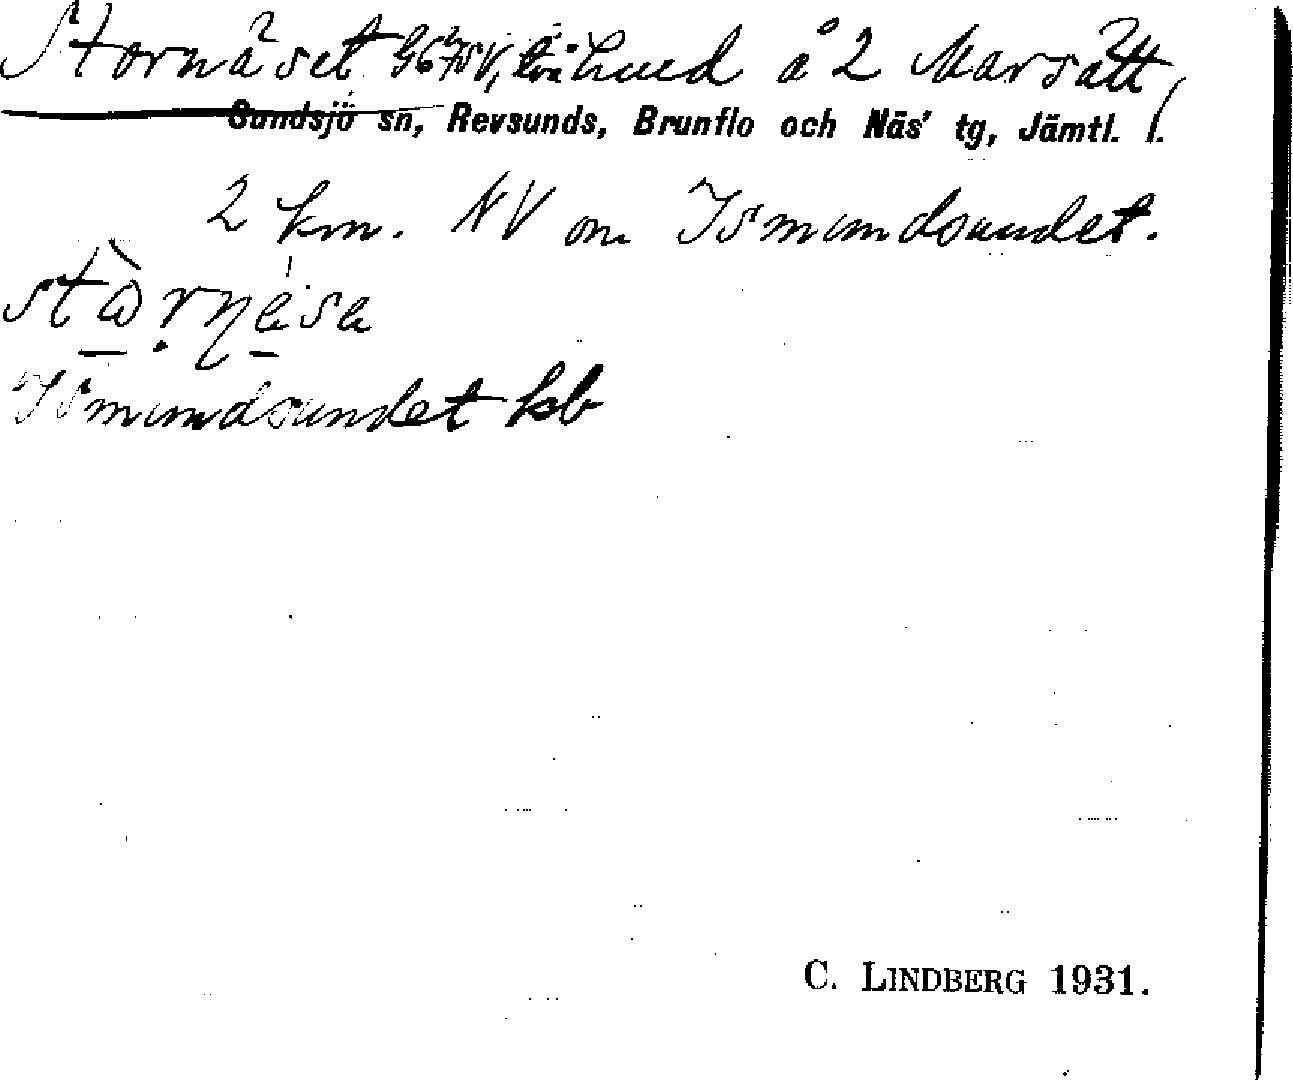 Stornäset hed å 2 Marsätt,
Sundsjö sn, Revsunds, Brunflo och Näs' tg, Jämtl. l.
2 km. NV om Ismundsundet.
Ismundsundet kb
C. LINDBERG 1931.